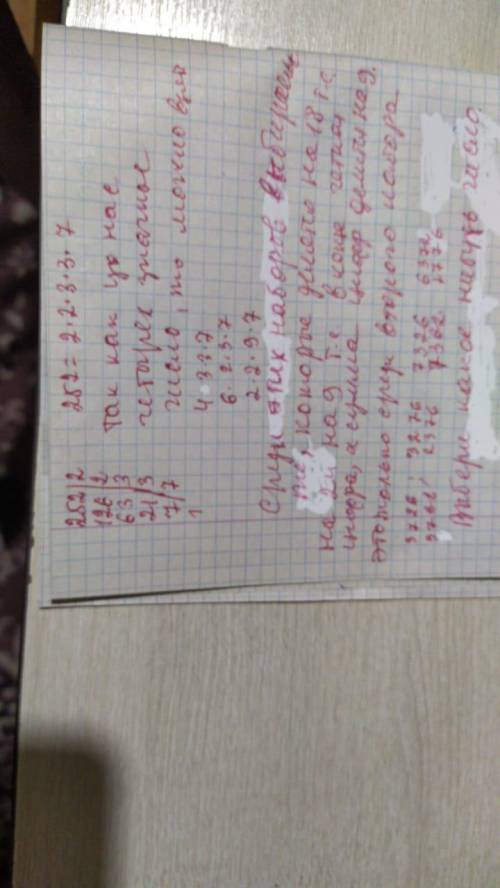 252|2 252 = 2·2·3·3·7
126|2 Так как у нас
63|3 четырех значное
21|3 число, то можно
7|7 4·3·3·7
1 6·2·3·7
2·2·9·7
Среди этих наборов выбираем
те, которые делятся на 18 т.е.
на 2 и на 9 т.е в конце четная
цифра, а сумма цифр делится на 9.
это только среди второго набора
3726, 3276 7326 6372
3762 2376 7362 2736
Выбери какое нибудь число.